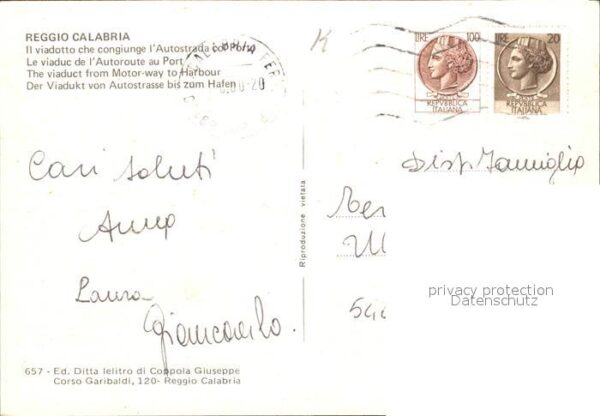 REGGIO CALABRIA
Il viadotto che congiunge l'Autostrada col Porto
Le viaduc de l'Autoroute au Port
The viaduct from Motor-way to Harbour
Der Viadukt von Autostrasse bis zum Hafen
K
LIRE 100
REPVBBLICA
ITALIANA
LIRE 20
REPVBBLICA
ITALIANA
Cari saluti
Anna
Laura
Giancarlo.
Riproduzione vietata
privacy protection
Datenschutz
657 - Ed. Ditta Ielitro di Coppola Giuseppe
Corso Garibaldi, 120- Reggio Calabria